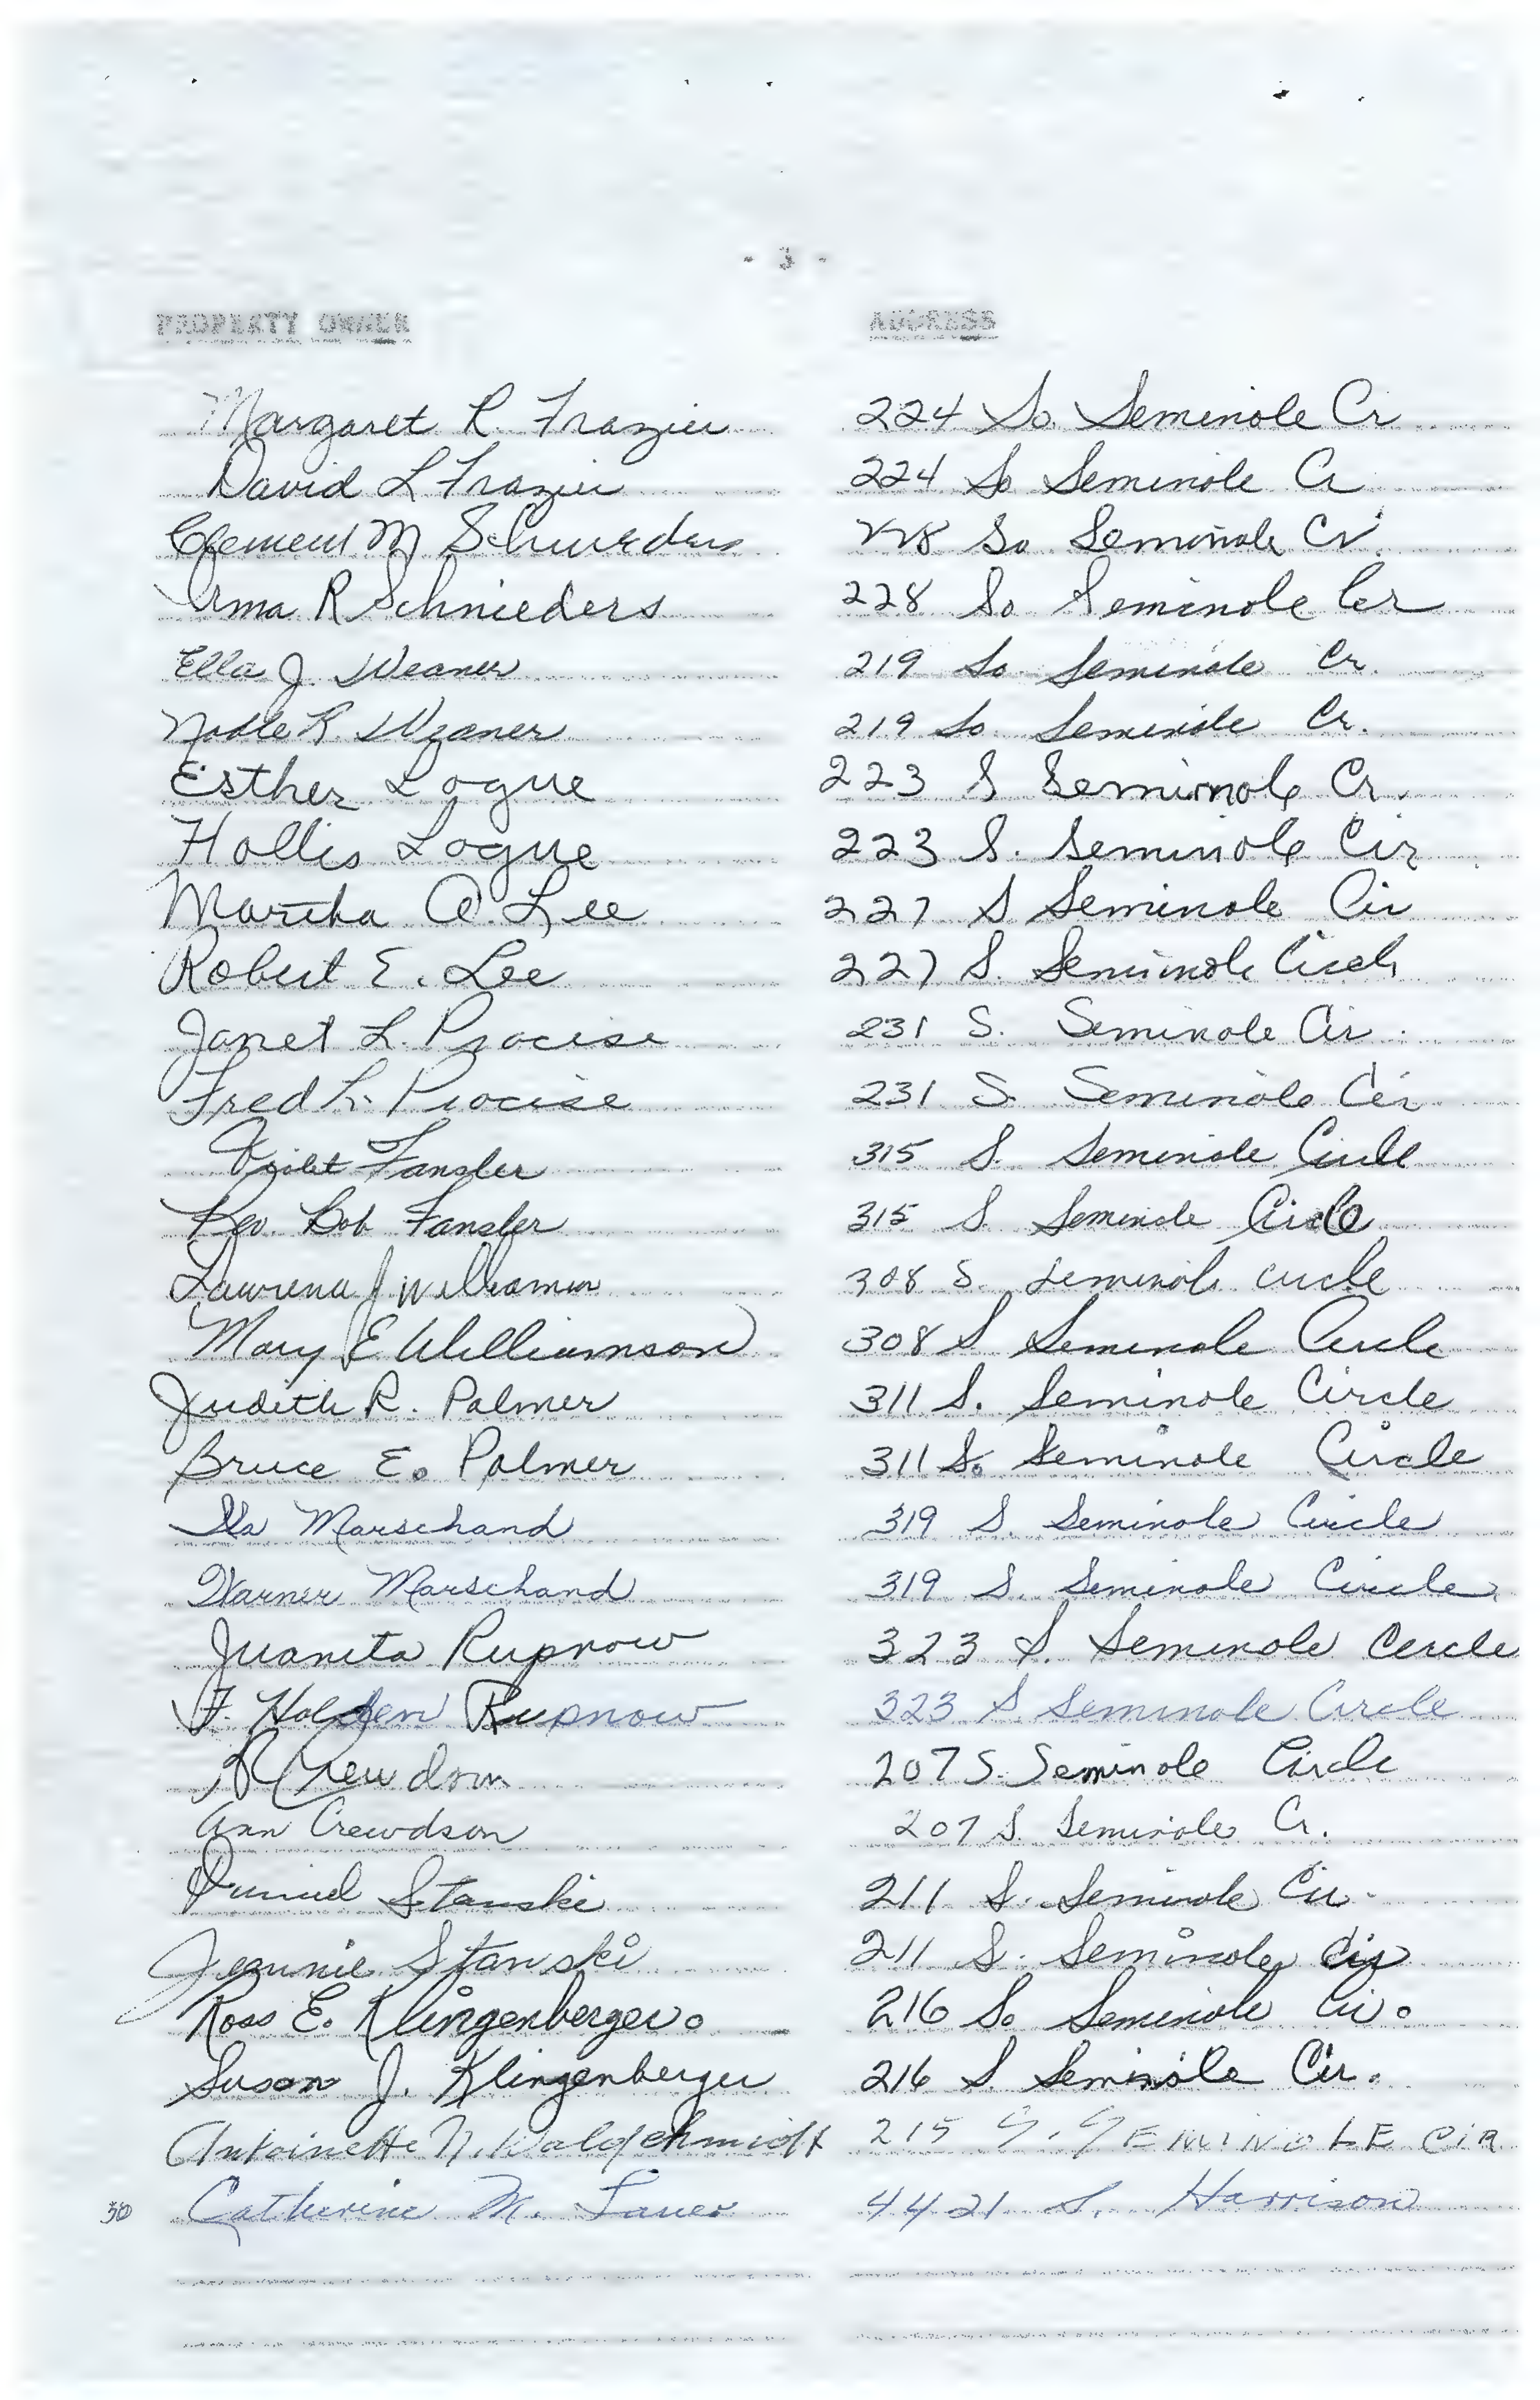 - 3 -
PROPERTY OWNER ADDRESS
Margaret R. Frazier 224 So. Seminole Cr
David L Frazier 224 So Seminole Cr
Clement M Schnieders 228 So Seminole Cr.
Irma R Schnieders 228 So Seminole Cer
Ella J. Weaner 219 So Seminole Cr.
Noble R. Weaner 219 So. Seminole Cr.
Esther Logue 223 S Seminole Cr.
Hollis Logue 223 S. Seminole Cir
Martha A. Lee 227 S Seminole Cir
Robert E. Lee 227 S. Seminole Circle
Janet L. Procise 231 S. Seminole Cir.
Fred L. Procise 231 S. Seminole Cir
Violet Fansler 315 S. Seminole Circle
Rev. Bob Fansler 315 S. Seminole Circle
J Williamson 308 S. Seminole circle
Mary E Williamson 308 S Seminole Circle
Judith R. Palmer 311 S. Seminole Circle
Bruce E. Palmer 311 S. Seminole Circle
Ila Marschand 319 S. Seminole Circle
Warner Marschand 319 S. Seminole Circle
Juanita Rupnow 323 S. Seminole Circle
F. Holden Rupnow 323 S Seminole Circle
R Crewdson 207 S. Seminole Circle
Ann Crewdson 207 S. Seminole Cr.
Daniel Stanski 211 S. Seminole Cir.
Jeannie Stanski 211 S. Seminole Cir
Ross E. Klingenberger. 216 So Seminole Cir.
Susan J. Klingenberger 216 S. Seminole Cir.
Antoinette N. Waldschmidt 215 S. SEMINOLE CIR
30 Catherine M. Lauer 4421 S. Harrison